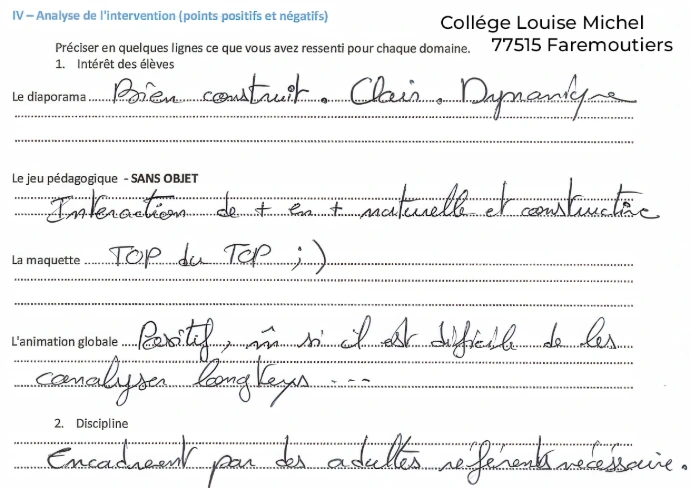 IV – Analyse de l'intervention (points positifs et négatifs)
Collége Louise Michel
77515 Faremoutiers
Préciser en quelques lignes ce que vous avez ressenti pour chaque domaine.
1. Intérêt des élèves
Le diaporama ..... Bien construit. Clair. Dynamique
Le jeu pédagogique - SANS OBJET
Interaction de + en + naturelle et constructive
La maquette ..... TOP du TOP ;)
L'animation globale .... Positif, m̂ si il est difficile de les
canalyser longtemps ...
2. Discipline
Encadrement par des adultes référents nécéssaire.